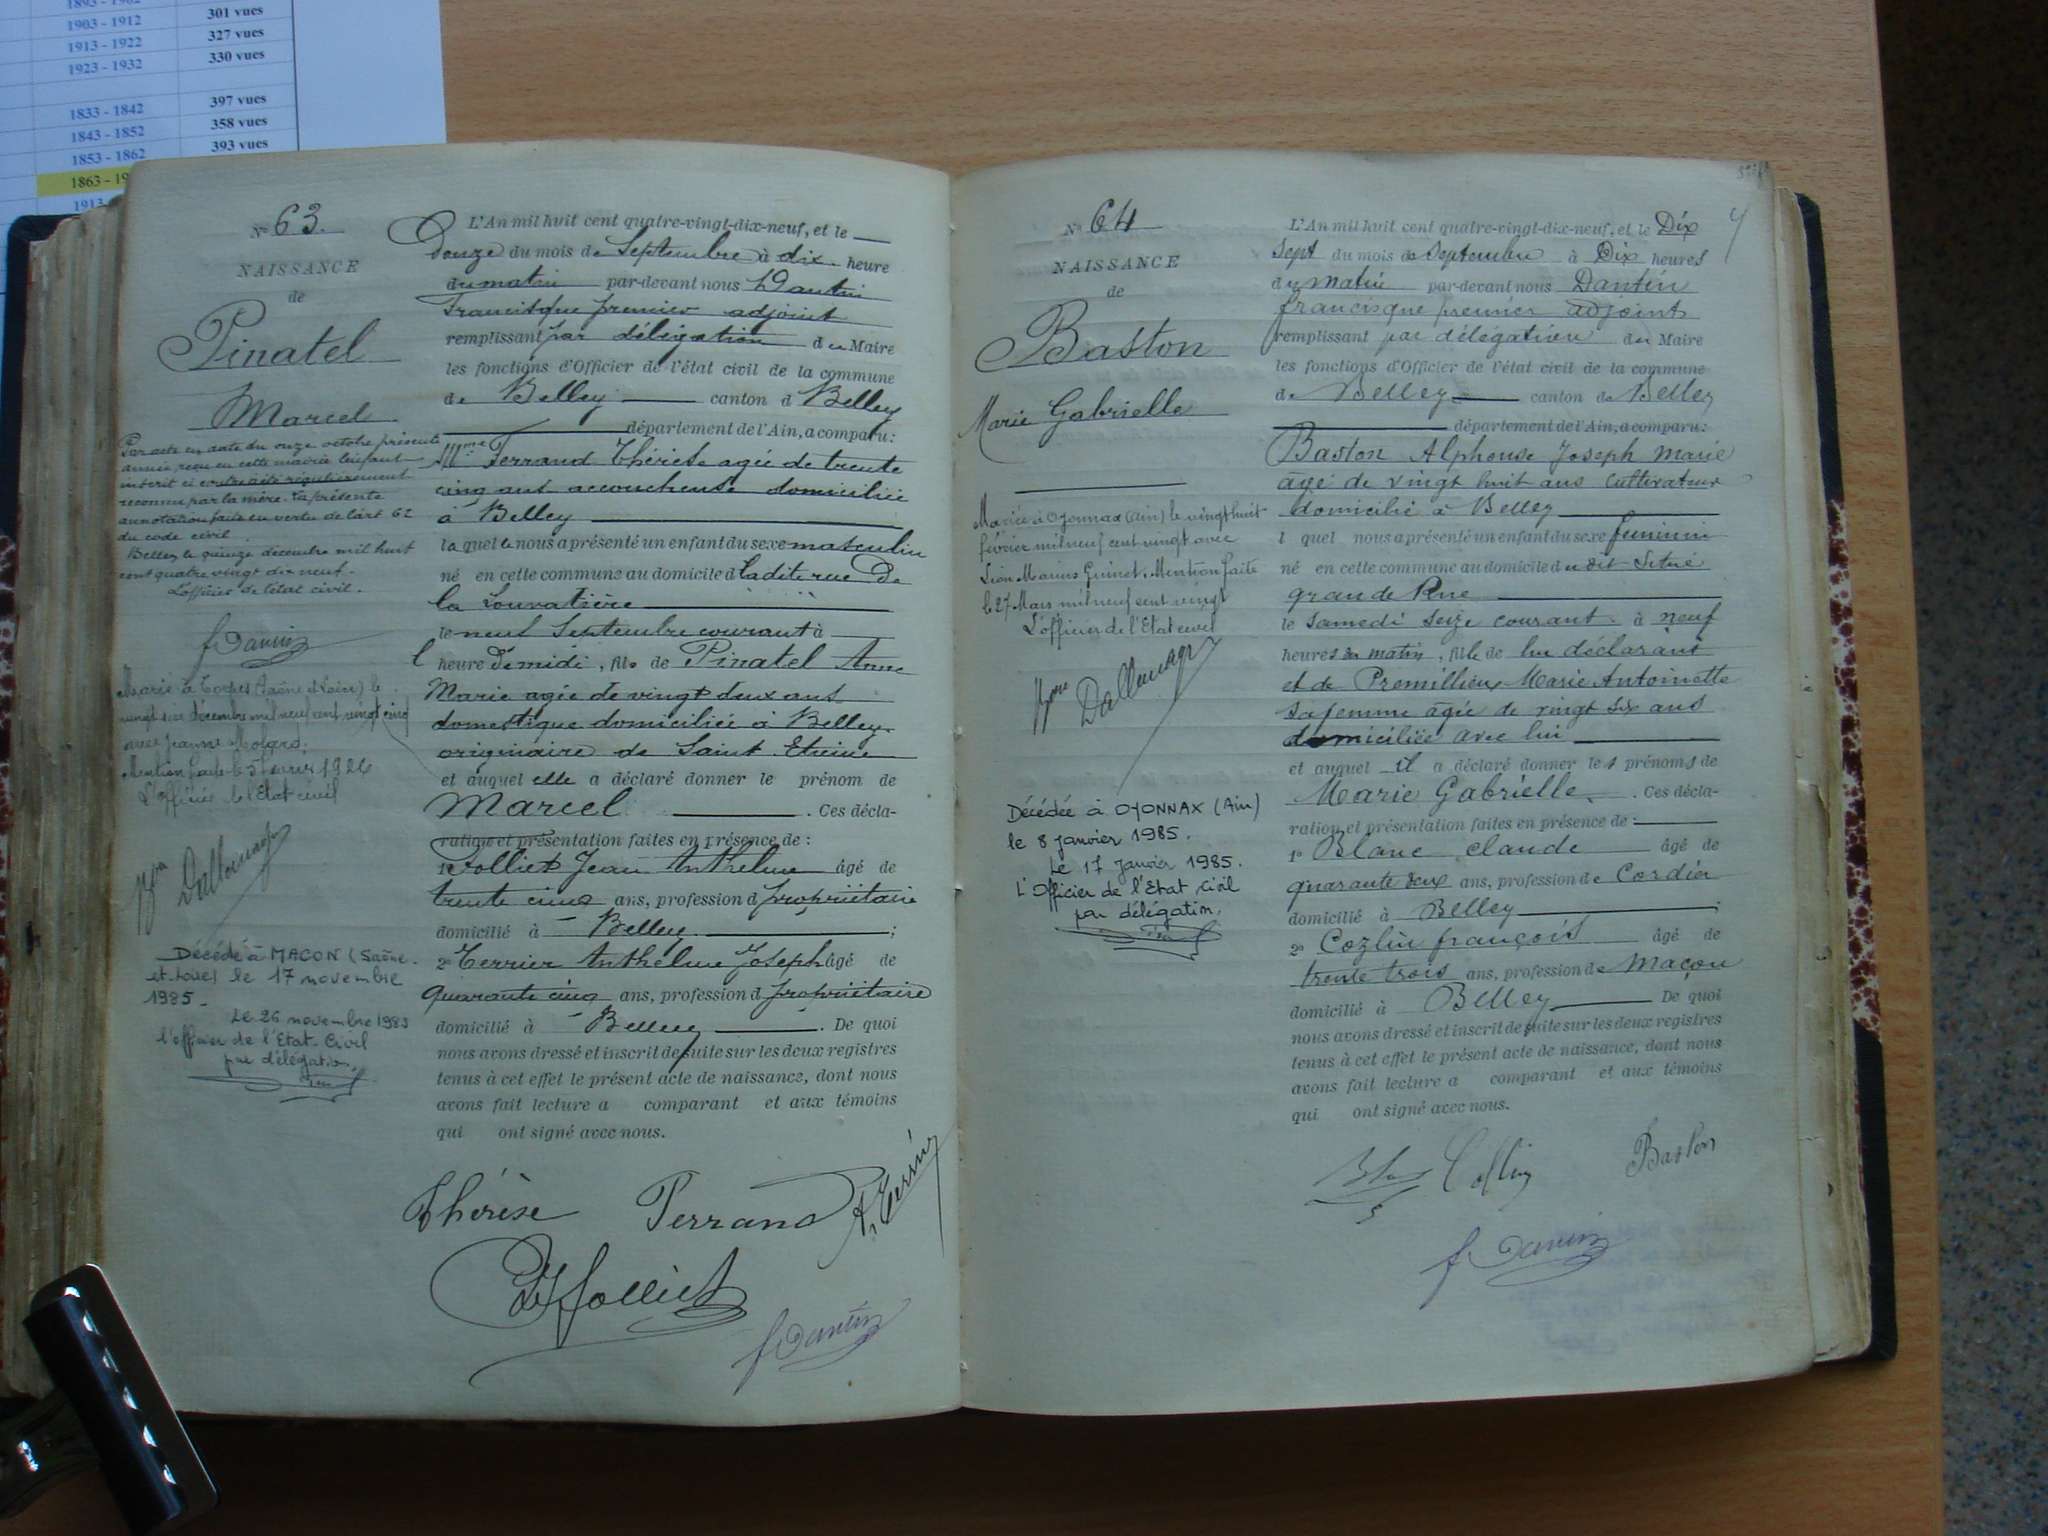 1903 - 1912 301 vues
1913 - 1922 327 vues
1923 - 1932 330 vues
1833 - 1842 397 vues
1843 - 1852 358 vues
1853 - 1862 393 vues
1863 - 19
1913
N° 63.
NAISSANCE
de
Pinatel
Marcel
Par acte en date du onze octobre présente
année reçu en cette mairie l'enfant
inscrit ci contre a été régulièrement
reconnu par la mère. La présente
annotation faite en vertu de l'art 62
du code civil.
Belley le quinze décembre mil huit
cent quatre vingt dix neuf.
L'officier de l'état civil.
f Dantin
Marié à (Saône et Loire) le
vingt six décembre mil neuf cent vingt cinq
avec Jeanne Molard.
Mention faite le 5 février 1926
L'officier de l'Etat civil
Dallemagne
Décédé à MACON (Saône
et Loire) le 17 novembre
1985.
Le 26 novembre 1985
l'officier de l'Etat Civil
par délégation.
L'An mil huit cent quatre-vingt-dix-neuf, et le
Douze du mois de Septembre à dix heure
du matin par-devant nous Dantin
Francisque premier adjoint
remplissant par délégation du Maire
les fonctions d'Officier de l'état civil de la commune
de Belley canton d Belley
département de l'Ain, a comparu:
Mme Ferrand Thérèse agée de trente
cinq ans accoucheuse domiciliée
à Belley
laquelle nous a présenté un enfant du sexe masculin
né en cette commune au domicile d ladite rue de
la Louvatière
le neuf Septembre courant à
l heure de midi, fils de Pinatel Anne
Marie agée de vingt deux ans
domestique domiciliée à Belley
originaire de Saint Etienne
et auquel elle a déclaré donner le prénom de
Marcel . Ces décla-
ration et présentation faites en présence de :
1° Folliet Jean Anthelme âgé de
trente cinq ans, profession d propriétaire
domicilié à Belley ;
2° Terrier Anthelme Joseph âgé de
quarante cinq ans, profession d propriétaire
domicilié à Belley . De quoi
nous avons dressé et inscrit de suite sur les deux registres
tenus à cet effet le présent acte de naissance, dont nous
avons fait lecture a comparant et aux témoins
qui ont signé avec nous.
Thérèse Ferrand A. Terrier
Folliet
f Dantin
N° 64
NAISSANCE
de
Baston
Marie Gabrielle
Mariée à Oyonnax (Ain) le vingt huit
février mil neuf cent vingt avec
Léon Marius Guinet. Mention faite
le 27 Mars mil neuf cent vingt
L'officier de l'Etat civil
Dallemagne
Décédée à OYONNAX (Ain)
le 8 janvier 1985.
Le 17 janvier 1985.
L'Officier de l'Etat civil
par délégation.
L'An mil huit cent quatre-vingt-dix-neuf, et le Dix
sept du mois de septembre à Dix heures
du matin par-devant nous Dantin
francisque premier adjoint
remplissant par délégation du Maire
les fonctions d'Officier de l'état civil de la commune
de Belley canton de Belley
département de l'Ain, a comparu:
Baston Alphonse Joseph Marie
âgé de vingt huit ans cultivateur
domicilié à Belley
l quel nous a présenté un enfant du sexe féminin
né en cette commune au domicile du dit situé
grande Rue
le samedi seize courant à neuf
heures du matin, fille de lui déclarant
et de Premillieux Marie Antoinette
sa femme âgée de vingt six ans
domiciliée avec lui
et auquel il a déclaré donner les prénoms de
Marie Gabrielle . Ces décla-
ration et présentation faites en présence de :
1° Blanc Claude âgé de
quarante deux ans, profession de Cordier
domicilié à Belley ;
2° Cozlin françois âgé de
trente trois ans, profession de Maçon
domicilié à Belley De quoi
nous avons dressé et inscrit de suite sur les deux registres
tenus à cet effet le présent acte de naissance, dont nous
avons fait lecture a comparant et aux témoins
qui ont signé avec nous.
Baston
f Dantin